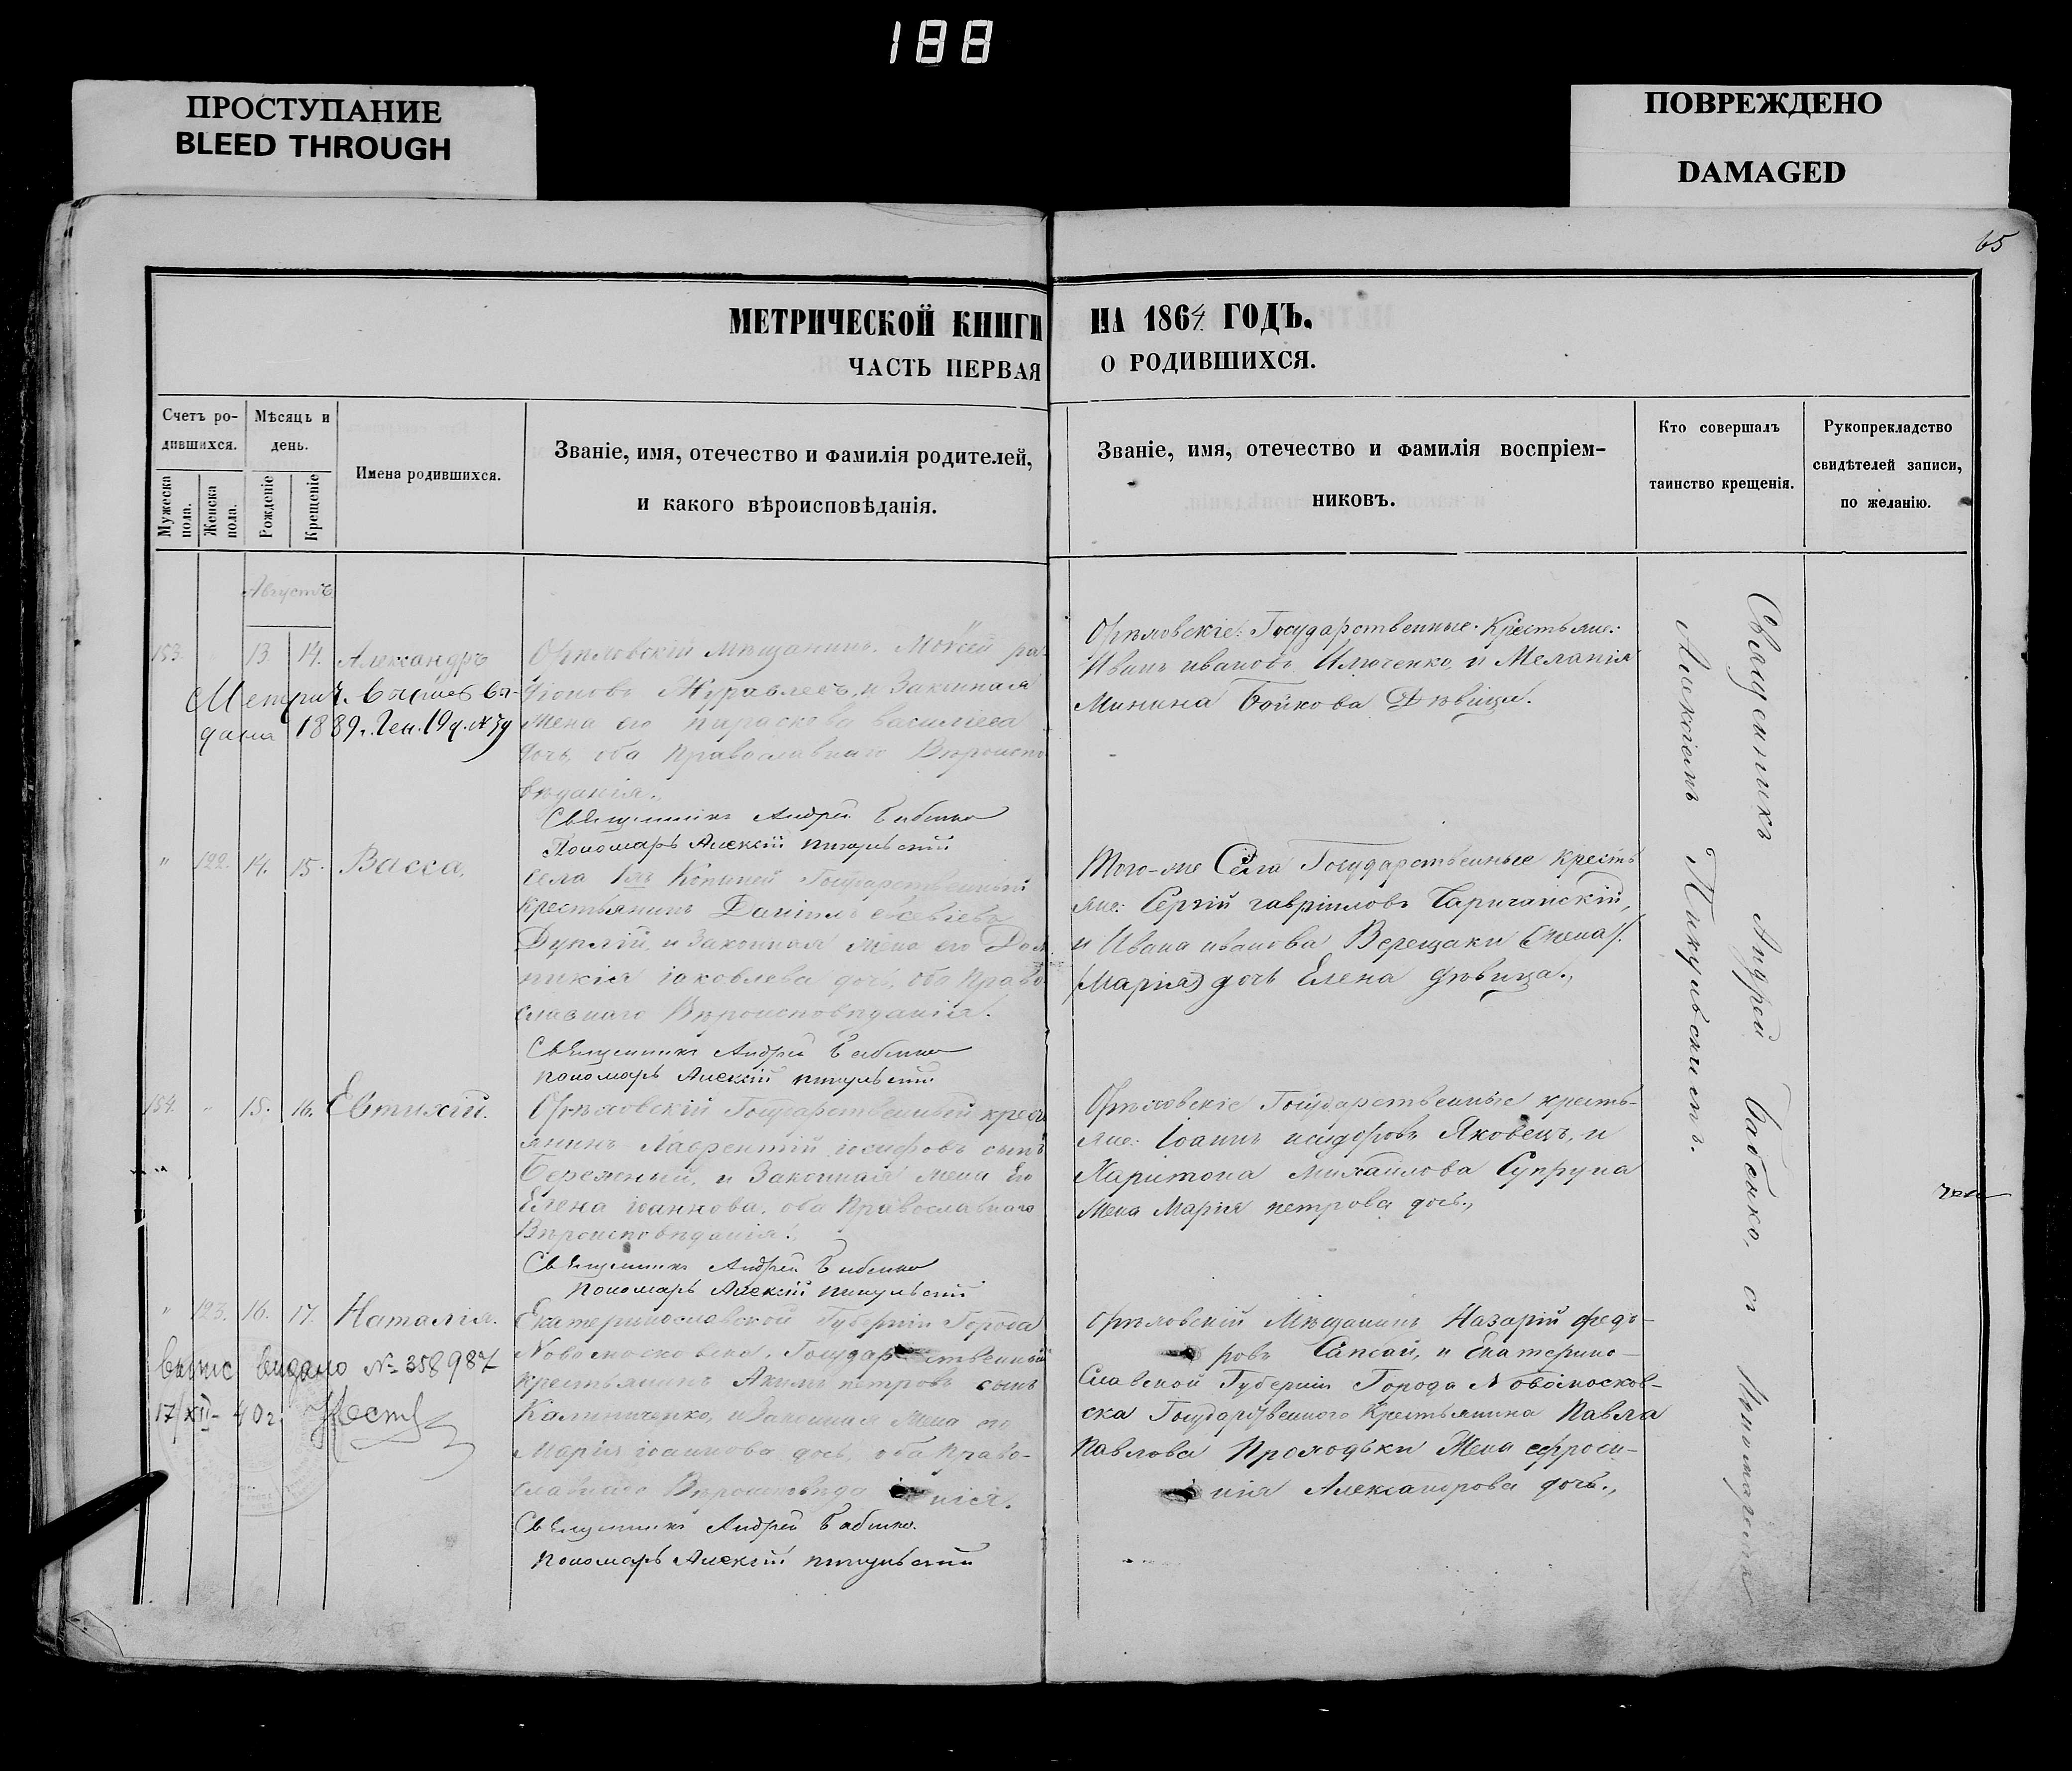 188
ПРОСТУПАНИЕ
BLEED THROUGH
ПОВРЕЖДЕНО
DAMAGED
65
МЕТРИЧЕСКОЙ КНИГИ НА 1864 ГОДЪ.
ЧАСТЬ ПЕРВАЯ О РОДИВШИХСЯ.
Счетъ ро-
дившихся.
Мужеска пола.
Женска пола.
Мѣсяць и
день.
Рожденіе
Крещеніе
Имена родившихся.
Званіе, имя, отечество и фамилія родителей,
и какого вѣроисповѣданія.
Званіе, имя, отечество и фамилія воспріем-
никовъ.
Кто совершалъ
таинство крещенія.
Рукопрекладство
свидѣтелей записи,
по желанію.
Августъ
153. 13 14. Александръ
Метрич.
дана 1889 г. Ген. 19 д. №
Орѣловскій Мѣщанинъ. Моѵсей ра-
діоновъ Журавлевъ, и Законная
жена его параскова василіева
дочь, оба православнаго Вѣроиспо
вѣданія.,
Священникъ Андрей Бабенко
Пономарь Алексій пикульскій
Орѣловскіе: Государственные Крестьяне:
Иванъ ивановъ Илюченко, и Меланія
Минина Бойкова Дѣвица.
" 122. 14. 15. Васса,
села Государственный
крестьянинъ Даніилъ евсевіевъ
Дуплій, и Законная жена его Дом
никія іаковлева дочь, оба право
славнаго Вѣроисповѣданія.
Священникъ Андрей Бабенко
пономарь Алексій пикульскій
Того-же Села Государственные кресть
яне: Сергій гавріиловъ Царичанскій,
и Ивана иванова Верещаки (жена).
(Марія) дочь Елена дѣвица.,
154. " 15. 16. Евтихій.
Орѣловскій Государственный крест
янинъ Лаврентій іосифовъ сынъ
Бережный, и Законная жена Его
Елена іоаннова, оба Православнаго
Вѣроисповѣданія.,
Священникъ Андрей Бабенко
пономарь Алексій пикульскій
Орѣловскіе Государственные кресть-
яне: Іоаннъ исидоровъ Яковецъ, и
Харитона михаилова Супруна
жена Марія петрова дочь.,
" 123. 16. 17. Наталія.
видано № 358987
17/XII- 40 г.
Екатеринославской Губерніи Города
Новомосковска, Государ ственный
крестьянинъ Акимъ петровъ сынъ
Калиниченко, и Законная жена его
Марія іоаннова дочь, оба Право-
славнаго Вѣроисповѣда нія.
Священникъ Андрей Бабенко.
пономарь Алексій пикульскій
Орѣловскій Мѣщанинъ Назарій федо-
ровъ Сапсай, и Екатерино-
Славской Губерніи Города Новомосков-
ска Государственного Крестьянина Павла
Павлова Проходьки Жена ефроси-
нія Александрова дочь.,
Священникъ Андрей Бабенко, съ Пономаремъ
Алексіемъ Пикульскимъ.